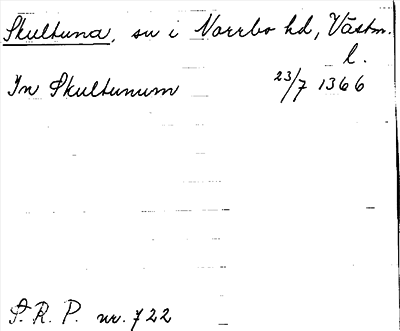 Skultuna, sn i Norrbo hd, Västm.
l.
In Skultunum 23/7 1366
S. R. P. nr. 722